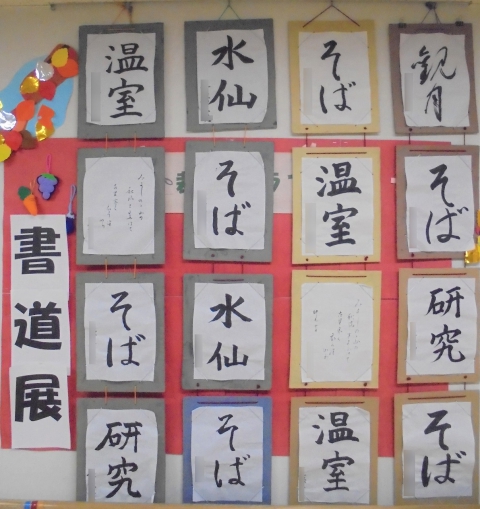 書道展
温室
水仙
そば
観月
そば
温室
そば
そば
水仙
研究
研究
そば
温室
そば